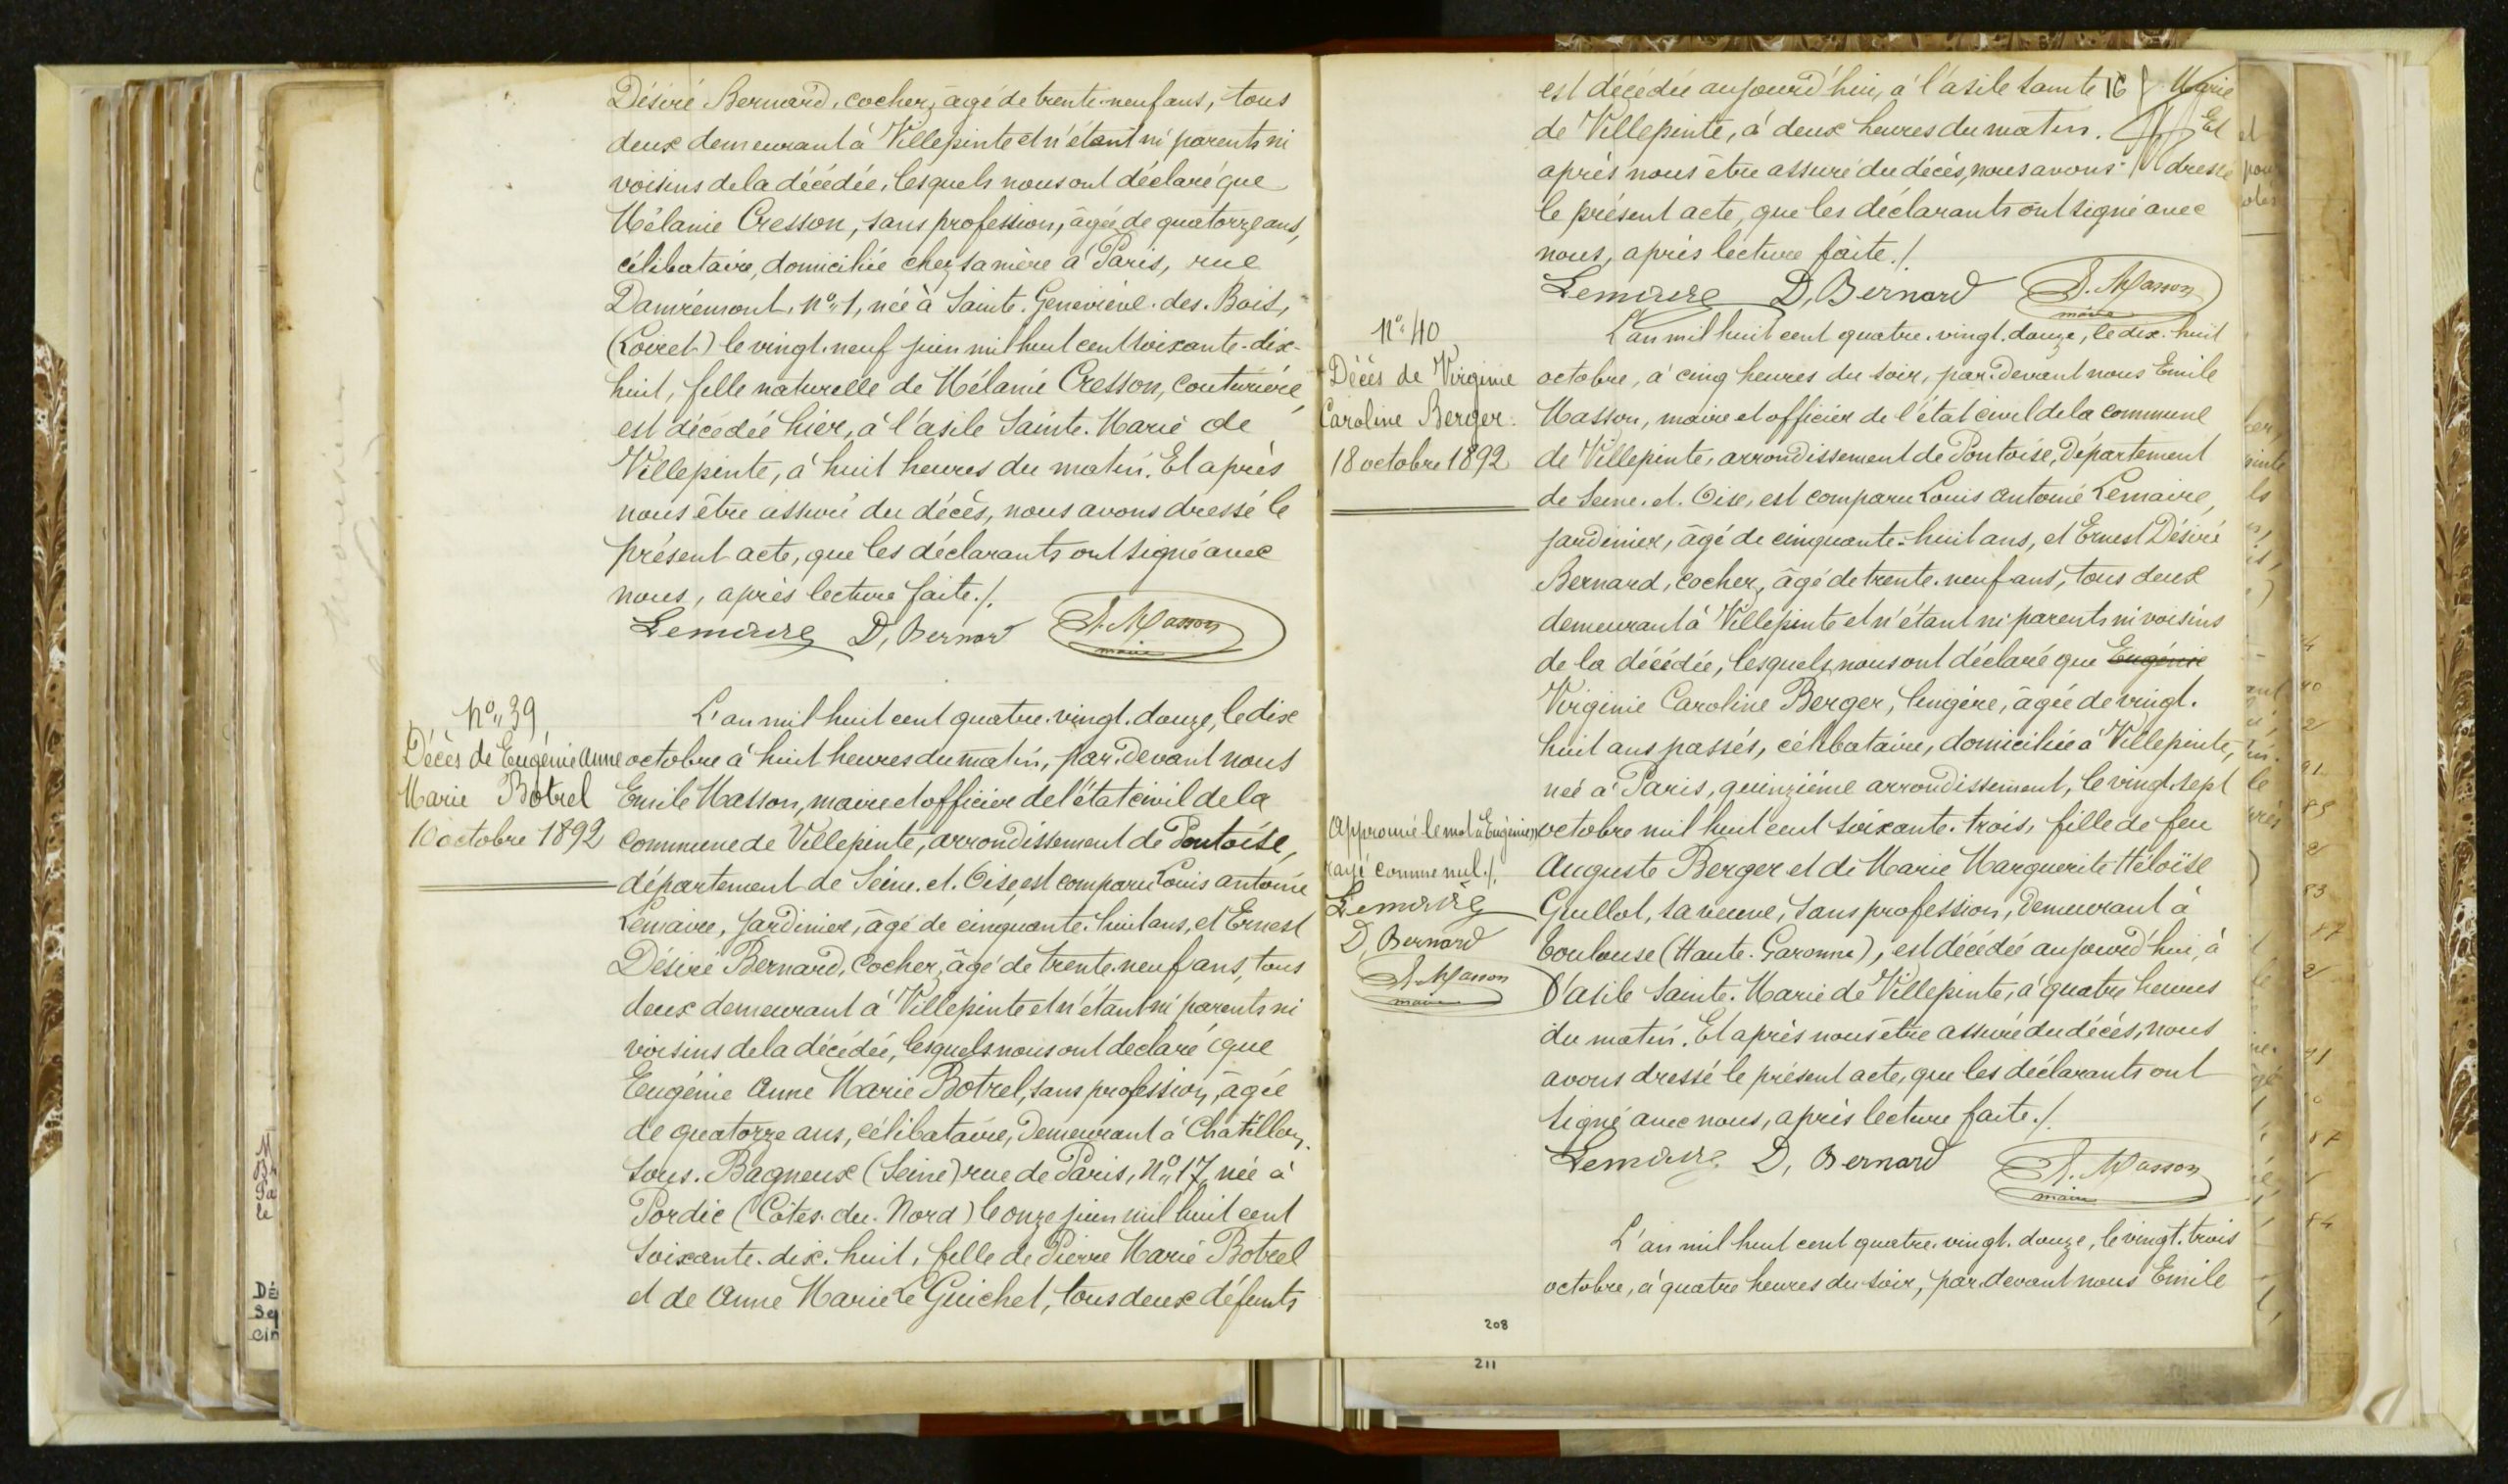 Désiré Bernard, cocher, âgé de trente-neuf ans, tous
deux demeurant à Villepinte et n'étant ni parents ni
voisins de la décédée, lesquels nous ont déclaré que
Mélanie Cresson, sans profession, âgée de quatorze ans,
célibataire, domiciliée chez sa mère à Paris, rue
Damrémont, n° 1, née à Sainte-Geneviève-des-Bois,
(Loiret) le vingt-neuf juin mil huit cent soixante-dix-
huit, fille naturelle de Mélanie Cresson, couturière,
est décédée hier, à l'asile Sainte-Marie de
Villepinte, à huit heures du matin. Et après
nous être assuré du décès, nous avons dressé le
présent acte, que les déclarants ont signé avec
nous, après lecture faite./.
Lemaire D, Bernard E. Masson
maire
N° 39
Décès de Eugénie Anne
Marie Botrel
10 octobre 1892
L'an mil huit cent quatre-vingt-douze, le dix
octobre à huit heures du matin, par-devant nous
Emile Masson, maire et officier de l'état civil de la
commune de Villepinte, arrondissement de Pontoise,
département de Seine-et-Oise, est comparu Louis Antoine
Lemaire, jardinier, âgé de cinquante-huit ans, et Ernest
Désiré Bernard, cocher, âgé de trente-neuf ans, tous
deux demeurant à Villepinte et n'étant ni parents ni
voisins de la décédée, lesquels nous ont declaré que
Eugénie Anne Marie Botrel, sans profession, âgée
de quatorze ans, célibataire, demeurant à Châtillon-
sous-Bagneux (Seine) rue de Paris, N° 17, née à
Pordic (Côtes-du-Nord) le onze juin mil huit cent
soixante-dix-huit, fille de Pierre Marie Botrel
et de Anne Marie Le Guichet, tous deux défunts
est décédée aujourd'hui, à l'asile Sainte Marie
de Villepinte, à deux heures du matin. Et
après nous être assuré du décès, nous avons dressé
le présent acte, que les déclarants ont signé avec
nous, après lecture faite./.
Lemaire D, Bernard E. Masson
maire
N° 40
Décès de Virginie
Caroline Berger.
18 octobre 1892
L'an mil huit cent quatre-vingt-douze, le dix-huit
octobre, à cinq heures du soir, par-devant nous Emile
Masson, maire et officier de l'état civil de la commune
de Villepinte, arrondissement de Pontoise, Département
de Seine-et-Oise, est comparu Louis Antoine Lemaire,
jardinier, âgé de cinquante-huit ans, et Ernest Désiré
Bernard, cocher, âgé de trente-neuf ans, tous deux
demeurant à Villepinte et n'étant ni parents ni voisins
de la décédée, lesquels nous ont déclaré que Eugénie
Virginie Caroline Berger, lingère, âgée de vingt-
huit ans passés, célibataire, domiciliée à Villepinte,
née à Paris, quinzième arrondissement, le vingt-sept
octobre mil huit cent soixante-trois, fille de feu
Auguste Berger et de Marie Marguerite Héloïse
Guillot, sa veuve, sans profession, demeurant à
Toulouse (Haute-Garonne), est décédée aujourd'hui, à
l'asile Sainte-Marie de Villepinte, à quatre heures
du matin. Et après nous être assuré du décès, nous
avons dressé le présent acte, que les déclarants ont
signé avec nous, après lecture faite./.
Lemaire D, Bernard E. Masson
maire
Approuvé le mot "Eugénie"
rayé comme nul./.
Lemaire
D, Bernard
E. Masson
maire
L'an mil huit cent quatre-vingt-douze, le vingt-trois
octobre, à quatre heures du soir, par-devant nous Emile
208
211